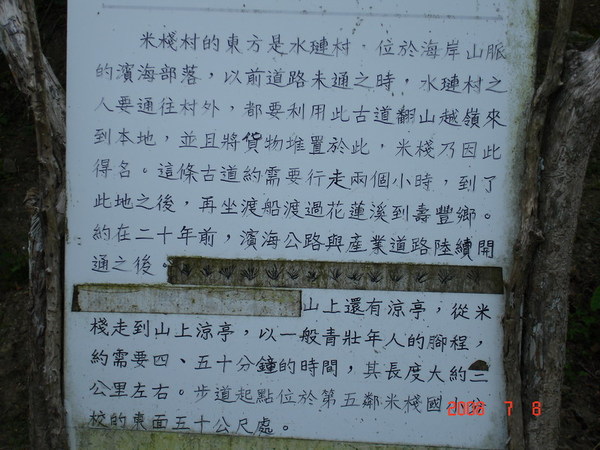 米棧村的東方是水璉村，位於海岸山脈
的濱海部落，以前道路未通之時，水璉村之
人要通往村外，都要利用此古道翻山越嶺來
到本地，並且將貨物堆置於此，米棧乃因此
得名。這條古道約需要行走兩個小時，到了
此地之後，再坐渡船渡過花蓮溪到壽豐鄉。
約在二十年前，濱海公路與產業道路陸續開
通之後。
山上還有涼亭，從米
棧走到山上涼亭，以一般青壯年人的腳程，
約需要四、五十分鐘的時間，其長度大約二
公里左右。步道起點位於第五鄰米棧國小分
校的東面五十公尺處。
2006 7 8